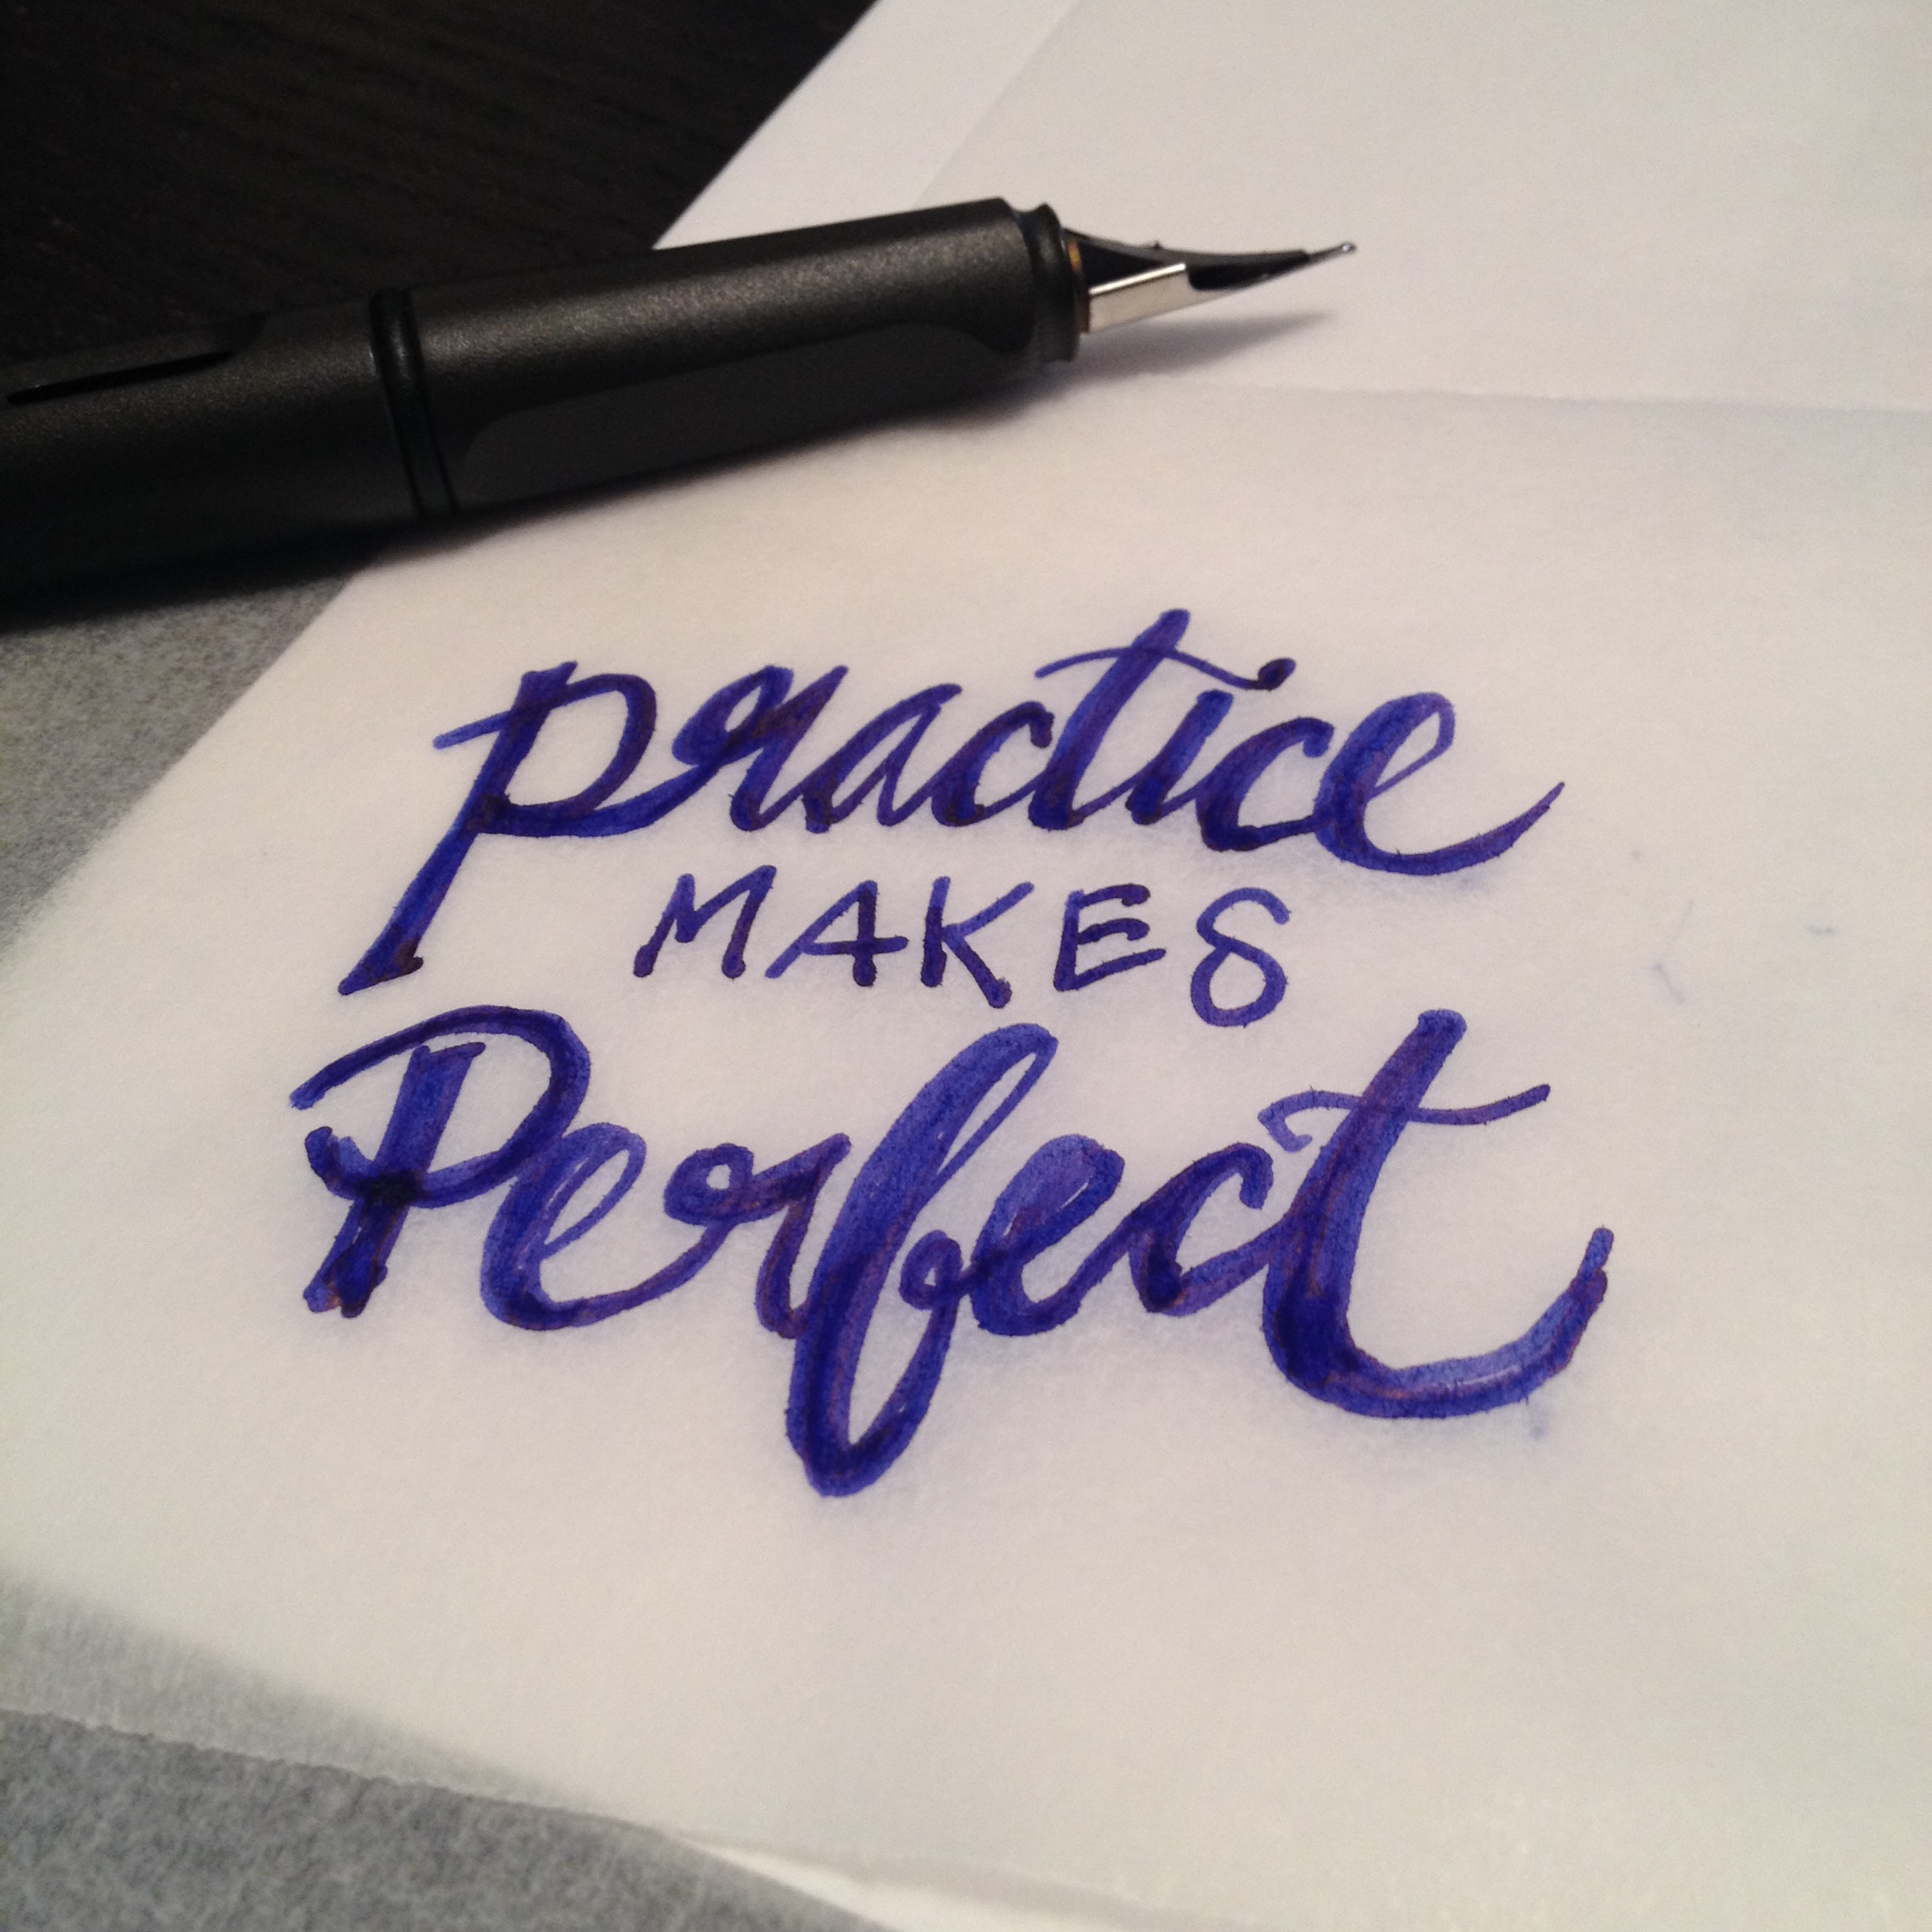 Practice
MAKES
Perfect